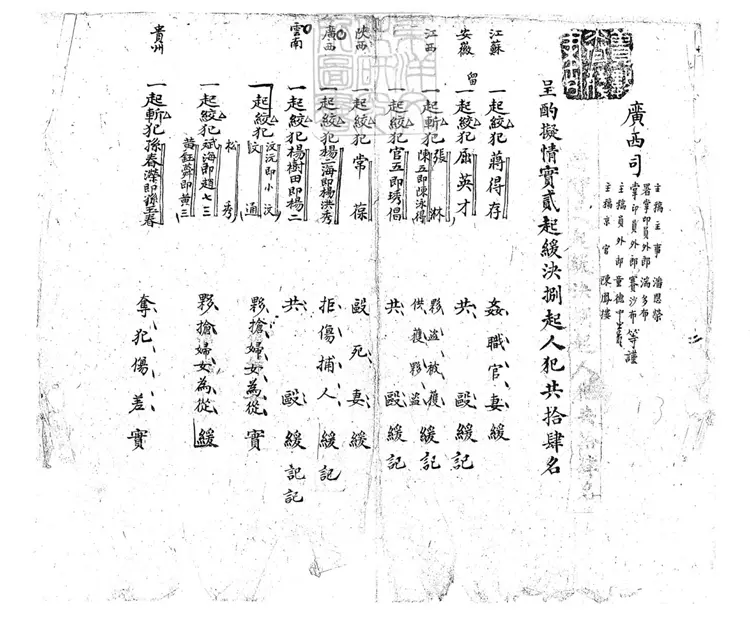 廣西司
主稿主事潘恩榮
署掌印員外郎滿多布
掌印員外郎賽沙布等謹
主稿員外郎董德中
主稿京官陳鳳樓
呈酌擬情實貳起緩決捌起人犯共拾肆名
江蘇 一起絞犯蔣得存 姦職官妻緩
安徽 留 一起絞犯屈英才 共毆緩記
江西 一起斬犯張淋 夥盜被獲緩記
陳五即陳泳得 供獲夥盜
一起絞犯官五即琇倡 共毆緩記
陝西 一起絞犯常葆 毆死妻緩
廣西 一起絞犯楊二海即楊洪秀 拒傷捕人緩記
雲南 一起絞犯楊樹田即楊二 共毆緩記記
一起絞犯汶沅即小汶 夥搶婦女為從實
汶通
松秀
一起絞犯斌海即趙七三 夥搶婦女為從緩
黃鈺舜即黃三
貴州 一起斬犯孫春瀠即孫至春 奪犯傷差實
13